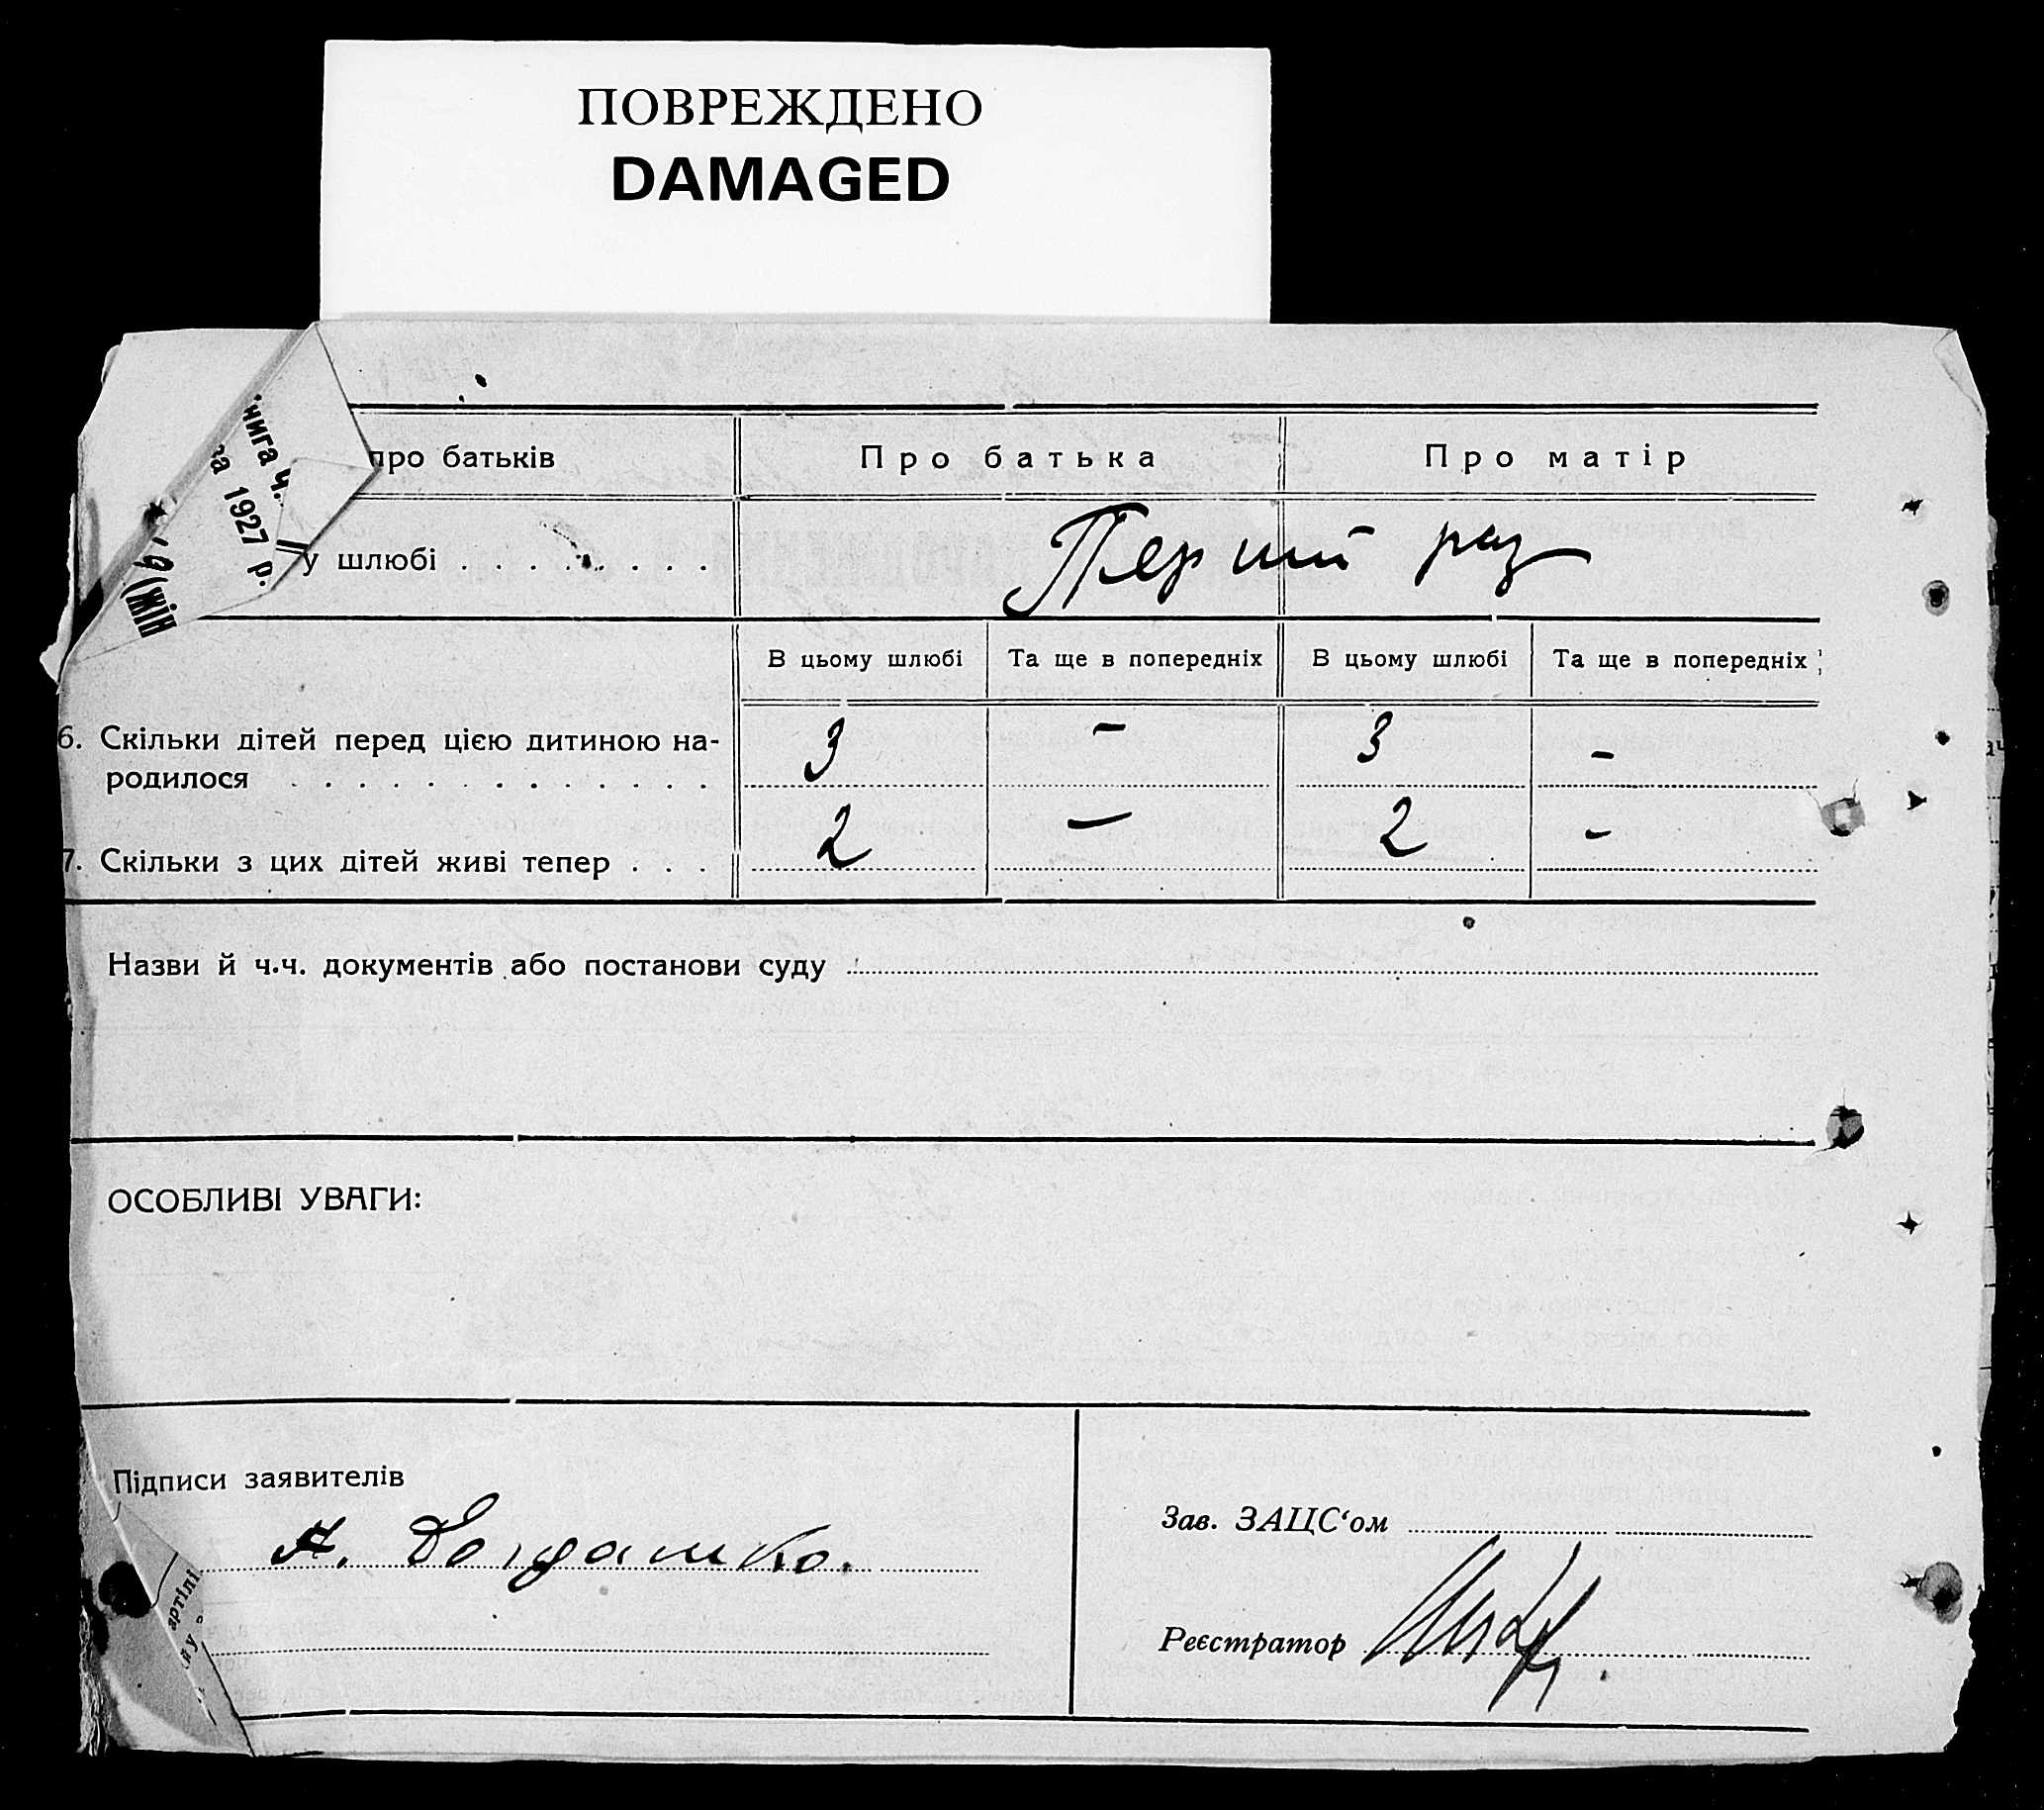 ПОВРЕЖДЕНО
DAMAGED
нига ч.
за 1927 р.
жін
про батьків
Про батька
Про матір
у шлюбі . . . . . . . . .
Перший раз
В цьому шлюбі
Та ще в попередніх
В цьому шлюбі
Та ще в попередніх
6. Скільки дітей перед цією дитиною на-
родилося . . . . . . . . . . . . .
3 – 3 –
7. Скільки з цих дітей живі тепер . . .
2 — 2 –
Назви й ч.ч. документів або постанови суду
ОСОБЛИВІ УВАГИ:
Підписи заявителів
Зав. ЗАЦС‘ом
артілі
йу
Реєстратор